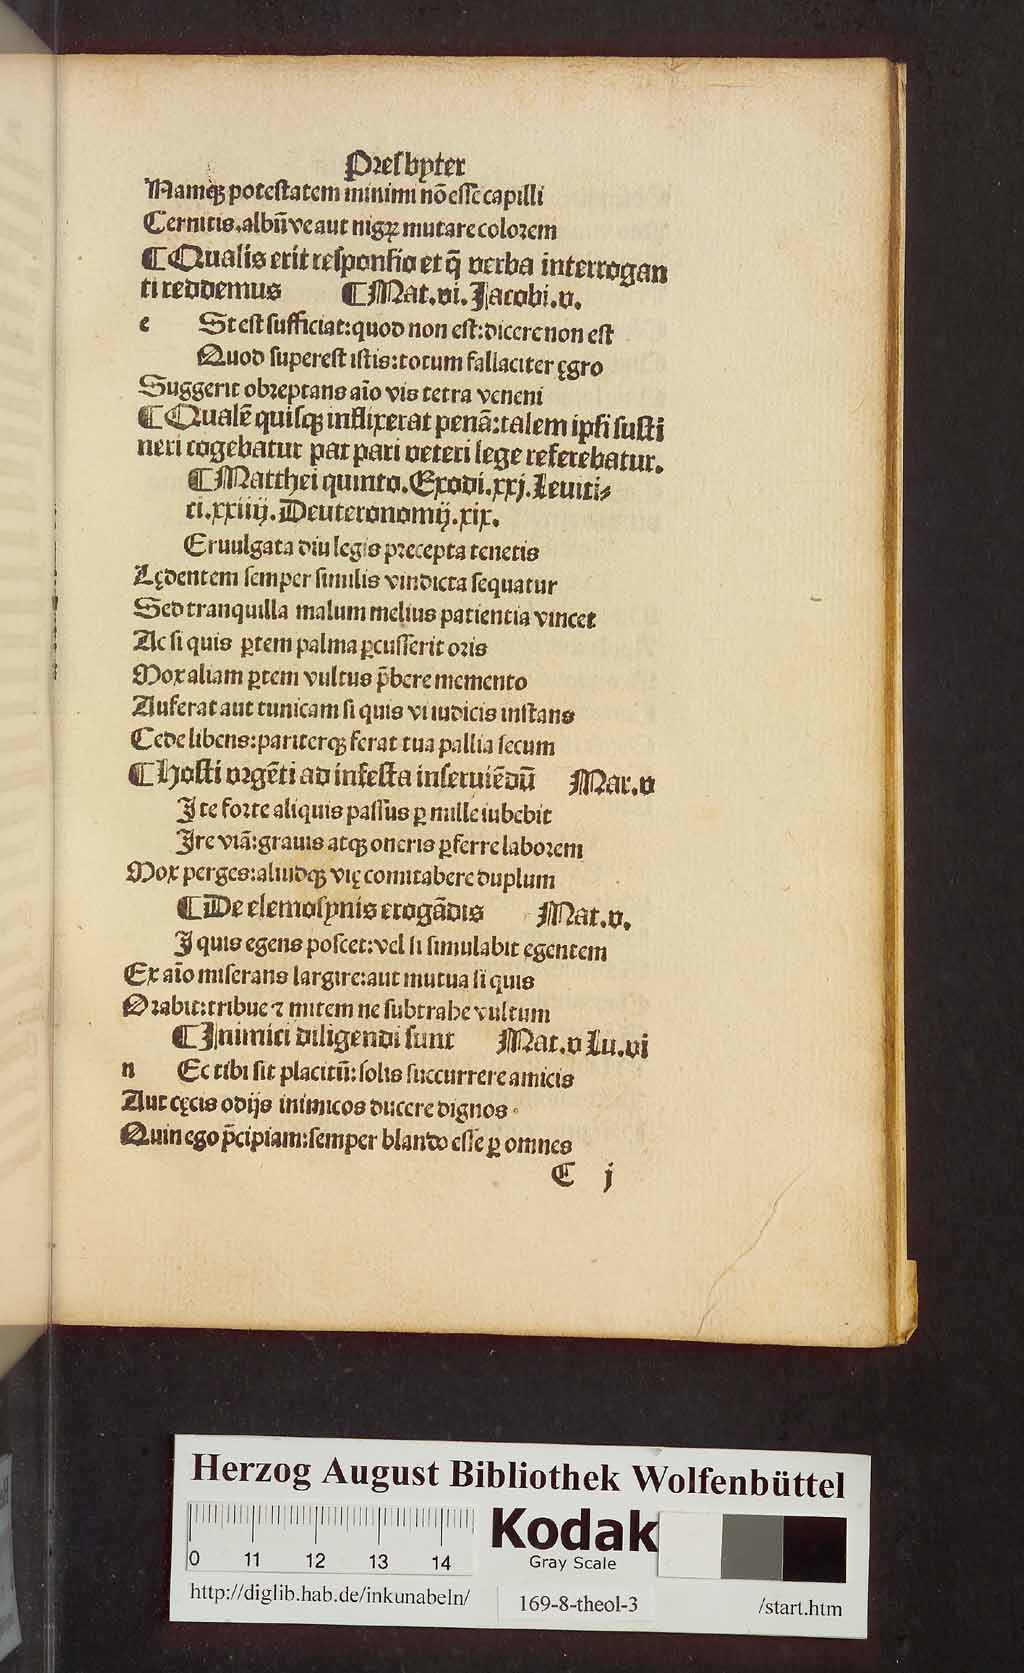 Presbyter
Namqꝫ potestatem minimi nō esse capilli
Cernitis, albū ve aut nigꝝ mutare colorem
¶ Qualis erit responsio et q̄ verba interrogan
ti reddemus ¶ Mat.vi. Jacobi.v.
e St est sufficiat: quod non est: dicere non est
Quod superest istis: totum fallaciter ęgro
Suggerit obreptans aīo vis tetra veneni
¶ Qualē quisqꝫ inflixerat penā: talem ipsi susti
neri cogebatur par pari veteri lege referebatur.
¶ Matthei quinto. Exodi.xxj. Leuiti⸗
ci.xxiiij. Deuteronomij.xix.
Eruulgata diu legis precepta tenetis
Lędentem semper similis vindicta sequatur
Sed tranquilla malum melius patientia vincet
Ac si quis ꝑtem palma ꝑcusserit oris
Mox aliam ꝑtem vultus p̄bere memento
Auferat aut tunicam si quis vi iudicis instans
Cede libens: pariterqꝫ ferat tua pallia secum
¶ Hosti vrgēti ad infesta inseruiēdū Mat.v
I te forte aliquis passus ꝑ mille iubebit
Ire viā: grauis atqꝫ oneris ꝑferre laborem
Mox perges: aliudqꝫ vię comitabere duplum
¶ De elemosynis erogādis Mat.v.
I quis egens poscet: vel si simulabit egentem
Ex aīo miserans largire: aut mutua si quis
Orabit: tribue ⁊ mitem ne subtrahe vultum
¶ Inimici diligendi sunt Mat.v Lu.vi
n Ec tibi sit placitū: solis succurrere amicis
Aut cęcis odijs inimicos ducere dignos.
Quin ego p̄cipiam: semper blando esse ꝑ omnes
C j
Herzog August Bibliothek Wolfenbüttel
0 11 12 13 14
Kodak
Gray Scale
http://diglib.hab.de/inkunabeln/ 169-8-theol-3 /start.htm